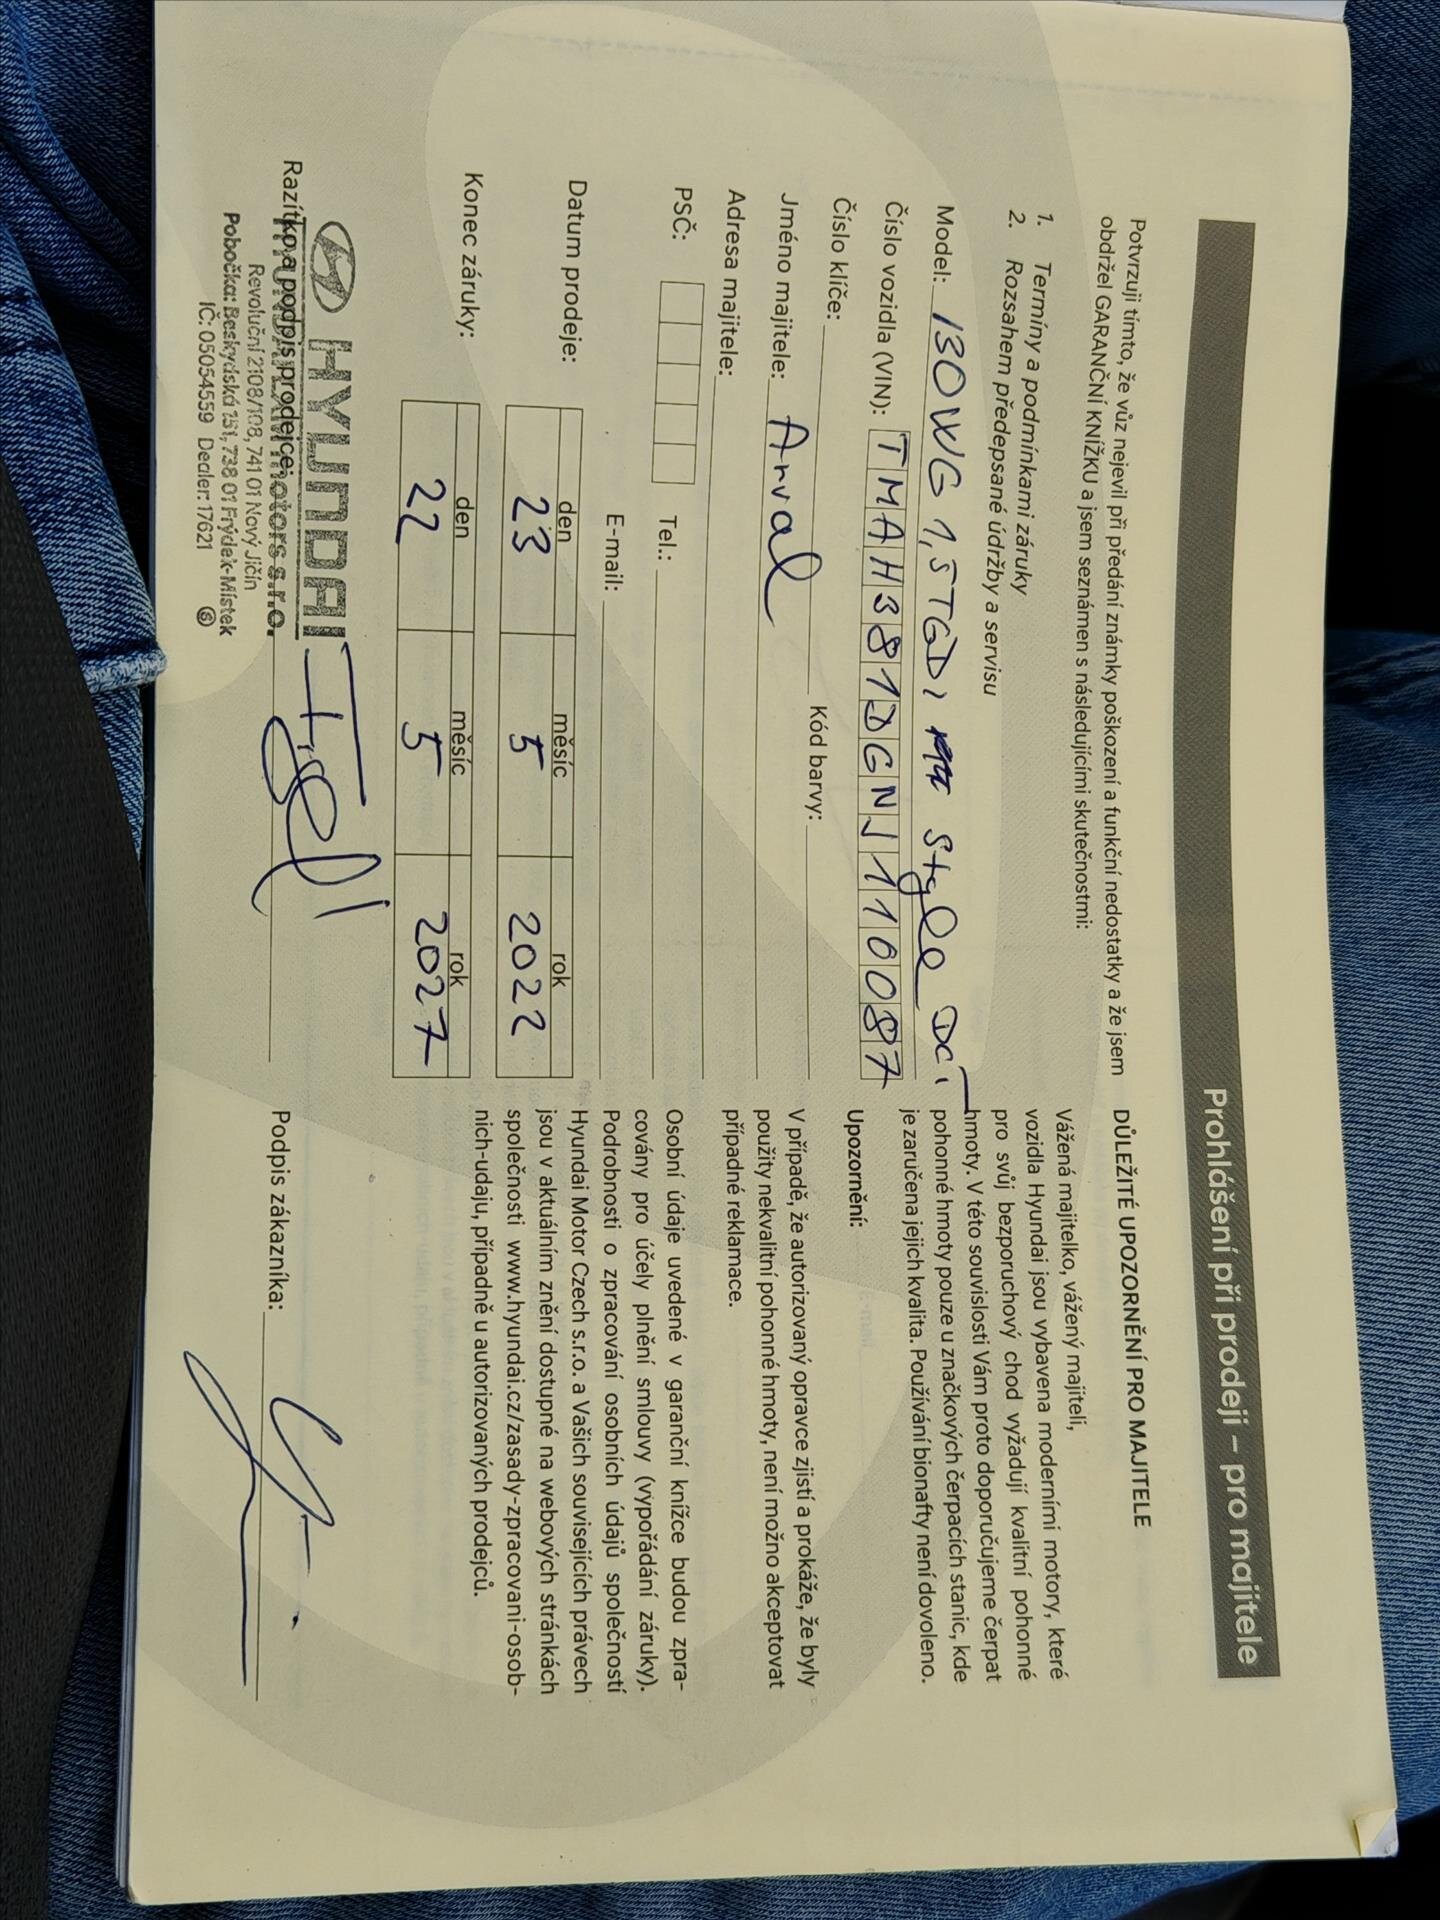 Prohlášení při prodeji – pro majitele
Potvrzuji tímto, že vůz nejevil při předání známky poškození a funkční nedostatky a že jsem
obdržel GARANČNÍ KNÍŽKU a jsem seznámen s následujícími skutečnostmi:
1. Termíny a podmínkami záruky
2. Rozsahem předepsané údržby a servisu
Model: I30 WG 1,5 TGDI Style DCT
Číslo vozidla (VIN): TMAH381DGNJ110087
Číslo klíče: Kód barvy:
Jméno majitele: Arval
Adresa majitele:
PSČ: Tel.:
E-mail:
den měsíc rok
Datum prodeje: 23 5 2022
den měsíc rok
Konec záruky: 22 5 2027
HYUNDAI
Razítko a podpis prodejce:
motors s.r.o.
Revoluční 2108/108, 741 01 Nový Jičín
Pobočka: Beskydská 151, 738 01 Frýdek-Místek
IČ: 05054559 Dealer: 17621 ⑥
DŮLEŽITÉ UPOZORNĚNÍ PRO MAJITELE
Vážená majitelko, vážený majiteli,
vozidla Hyundai jsou vybavena moderními motory, které
pro svůj bezporuchový chod vyžadují kvalitní pohonné
hmoty. V této souvislosti Vám proto doporučujeme čerpat
pohonné hmoty pouze u značkových čerpacích stanic, kde
je zaručena jejich kvalita. Používání bionafty není dovoleno.
Upozornění:
V případě, že autorizovaný opravce zjistí a prokáže, že byly
použity nekvalitní pohonné hmoty, není možno akceptovat
případné reklamace.
Osobní údaje uvedené v garanční knížce budou zpra-
covány pro účely plnění smlouvy (vypořádání záruky).
Podrobnosti o zpracování osobních údajů společností
Hyundai Motor Czech s.r.o. a Vašich souvisejících právech
jsou v aktuálním znění dostupné na webových stránkách
společnosti www.hyundai.cz/zasady-zpracovani-osob-
nich-udaju, případně u autorizovaných prodejců.
Podpis zákazníka: